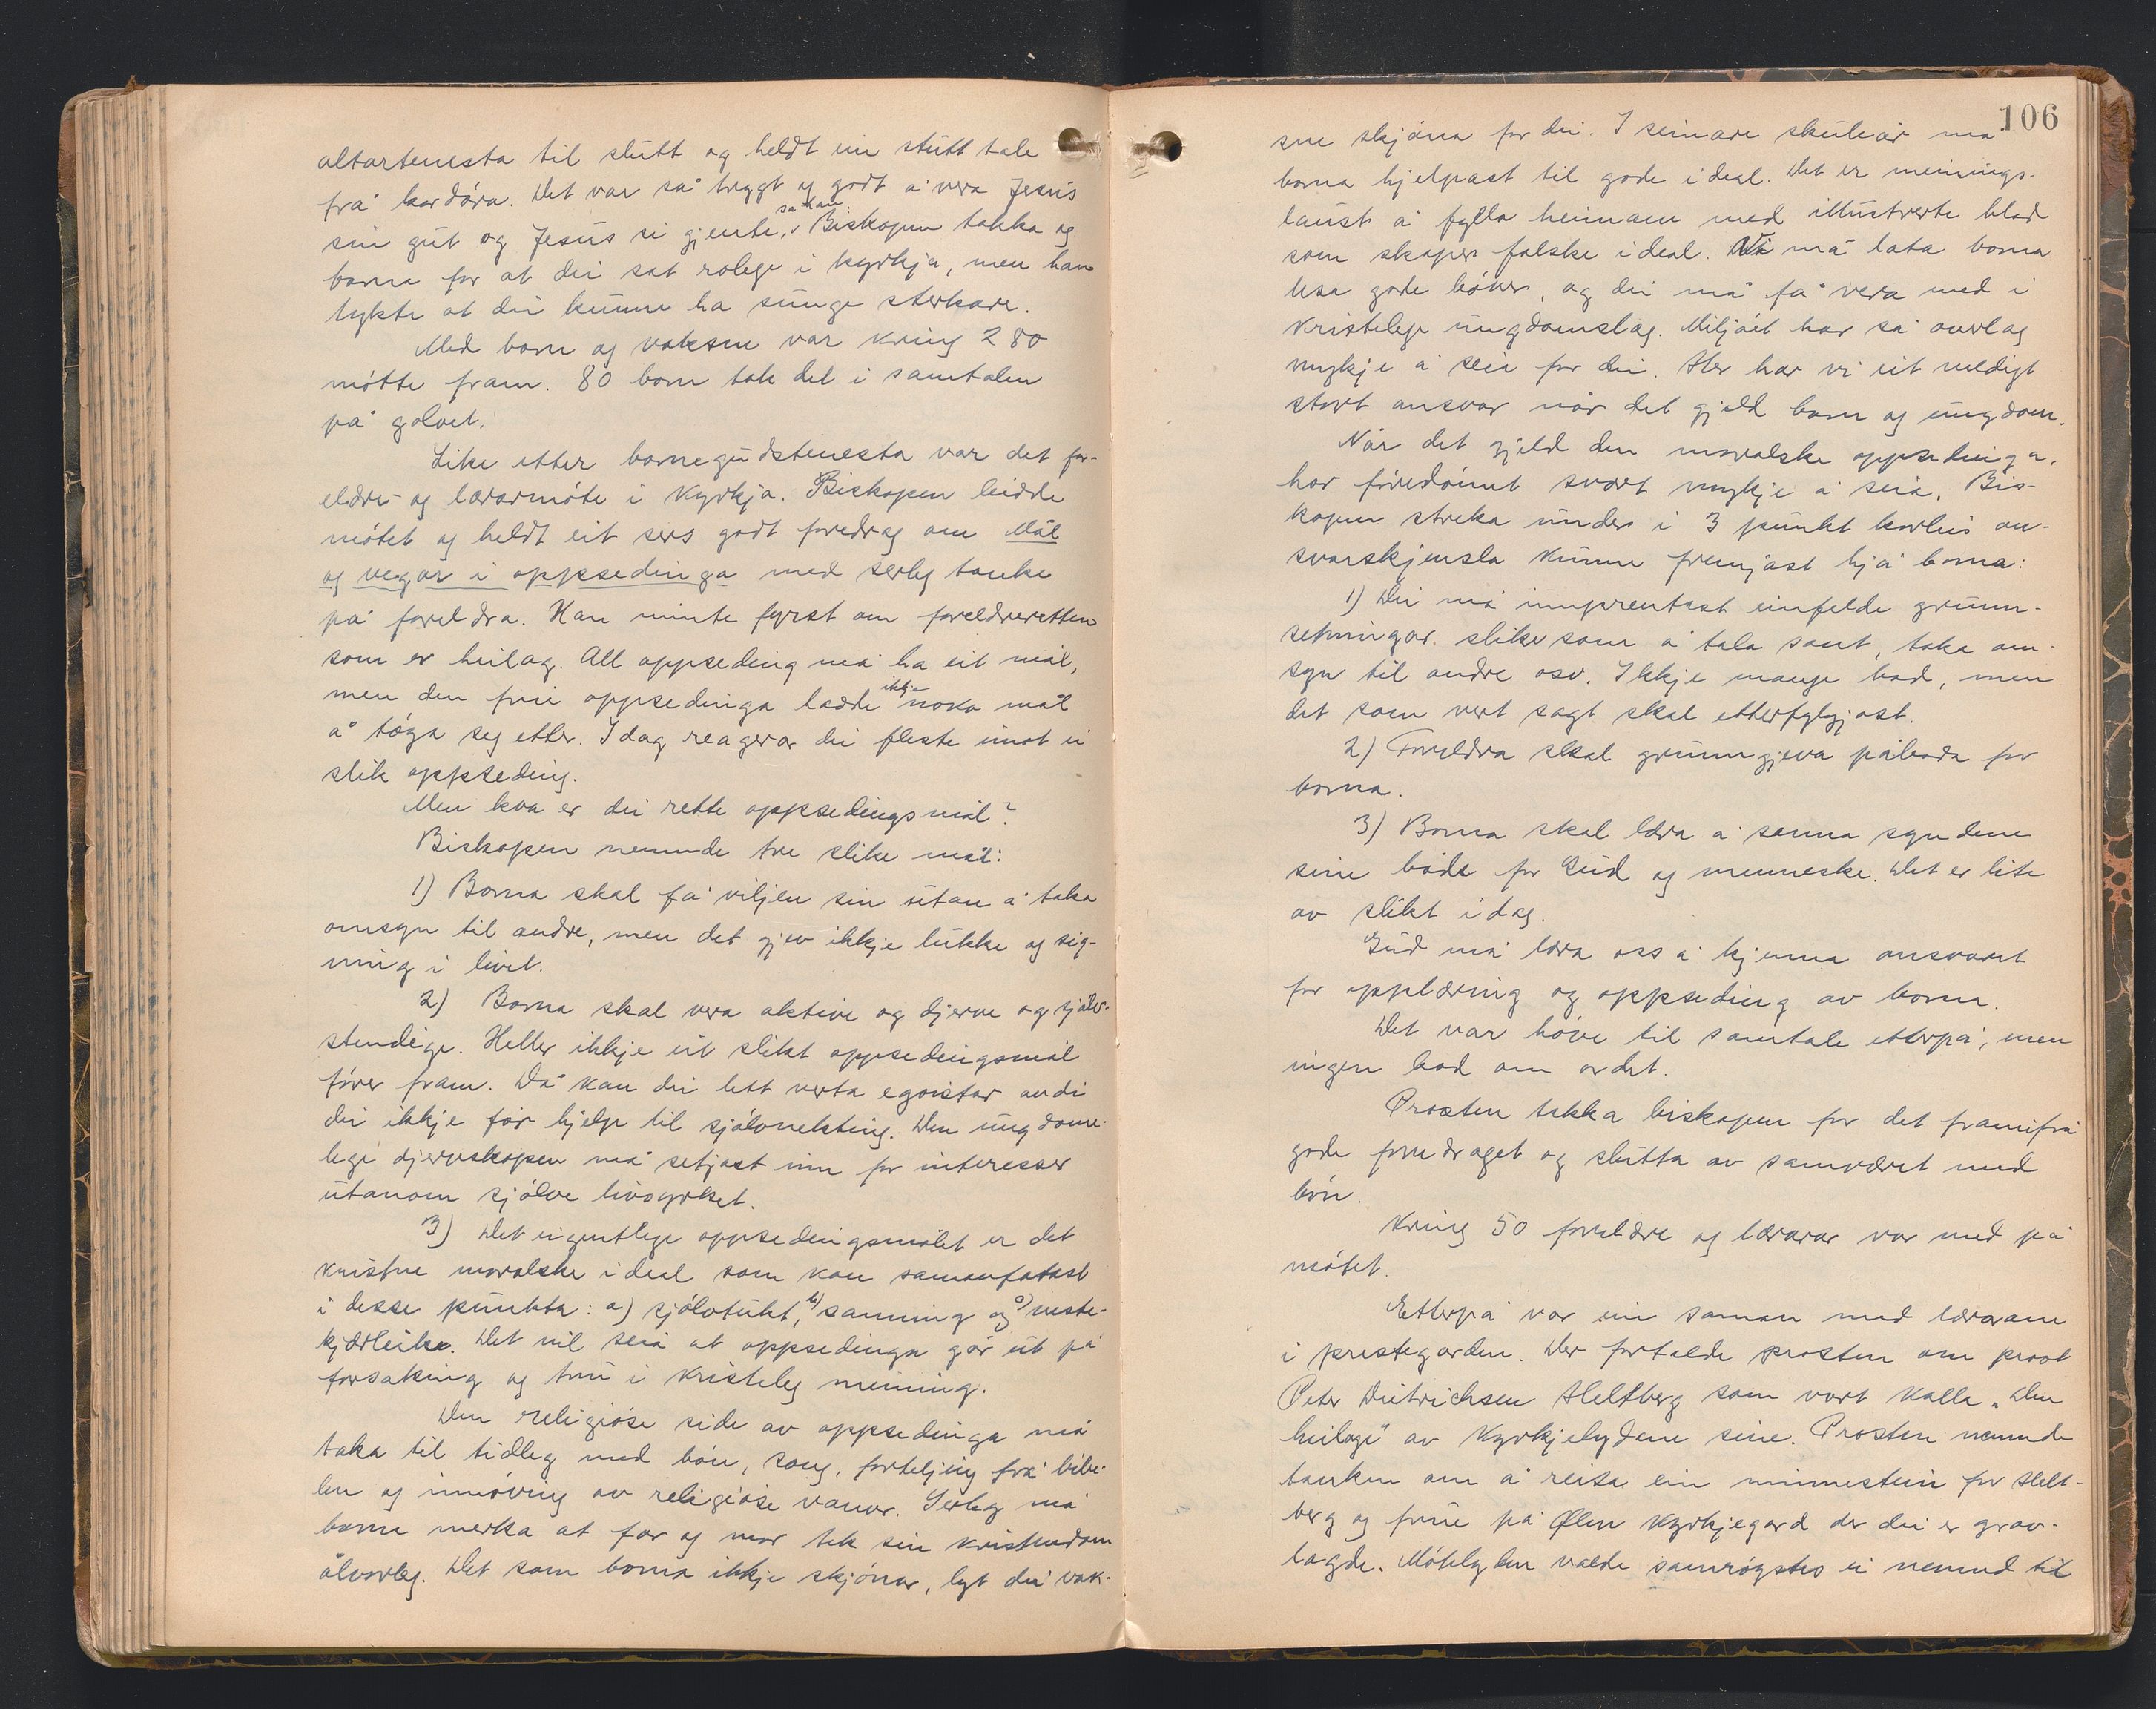 altartenesta til slutt og heldt ein stutt tale
frå kordøra. Det var så trygt og godt å vera Jesus
sin gut og Jesus si gjente, sa han. Biskopen takka og
borna for at dei sat rolege i kyrkja, men han
tykte at dei kunne ha sunge sterkare.
Med born og vaksne var kring 280
møtte fram. 80 born tok del i samtalen
på golvet.
Like etter bornegudstenesta var det for-
eldre- og lærarmøte i Kyrkja. Biskopen leidde
møtet og heldt eit sers godt foredrag om Mål
og vegar i oppsedinga med serleg tanke
på foreldra. Han minte fyrst om foreldreretten
som er heilag. All oppseding må ha eit mål,
men den frie oppsedinga hadde ikkje noko mål
å tøga seg etter. I dag reagerar dei fleste imot ei
slik oppseding.
Men kva er dei rette oppsedingsmål?
Biskopen nemnde tre slike mål:
1) Borna skal få viljen sin utan å taka
omsyn til andre, men det gjev ikkje lukke og sig-
ning i livet.
2) Borna skal vera aktive og djerve og sjølv-
stendige. Heller ikkje eit slikt oppsedingsmål
fører fram. Då kan dei lett verta egoistar av di
dei ikkje får hjelp til sjølvnekting. Den ungdome-
lege djervskapen må setjast inn for interesser
utanom sjølve livsyrket.
3) Det eigentlege oppsedingsmålet er det
kristne moralske ideal som kan samanfatast
i desse punkta: a) sjølvtukt, b) sanning og c) neste-
kjærleike. Det vil seia at oppsedinga går ut på
forsaking og tru i kristeleg meining.
Den religiøse side av oppsedinga må
taka til tidleg med bøn, song, forteljing frå bibe-
len og innøving av religiøse vanar. Serleg må
borna merka at far og mor tek sin kristendom
ålvorleg. Det som borna ikkje skjønar, lyt dei vak-
106
sne skjøna for dei. I seinare skuleår må
borna hjelpast til gode ideal. Det er meinings-
laust å fylla heimane med illustrerte blad
som skaper falske ideal. Vi må lata borna
lesa gode bøker, og dei må få vera med i
Kristelege ungdomslag. Miljøet har så ovrlag
mykje å seia for dei. Her har vi eit veldigt
stort ansvar når det gjeld born og ungdom.
Når det gjeld den moralske oppsedinga,
har føredømet svært mykje å seia. Bis-
kopen streka under i 3 punkt korleis an-
svarskjensla kunne fremjast hjå borna:
1) Dei må innprentast einfelde grunn-
setningar. slike som å tala sant, taka om-
syn til andre osv. Ikkje mange bod, men
det som vert sagt skal etterfylgjast.
2) Foreldra skal grunngjeva påboda for
borna.
3) Borna skal læra å sanna syndene
sine både for Gud og menneske. Det er lite
av slikt i dag.
Gud må læra oss å kjenna ansvaret
for opplæring og oppseding av borna.
Det var høve til samtale etterpå, men
ingen bad om ordet.
Prosten takka biskopen for det framifrå
gode foredraget og slutta av samværet med
bøn.
Kring 50 foreldre og lærarar var med på
møtet.
Etterpå var ein saman med lærarane
i prestegarden. Der fortalde prosten om prost
Peter Dietrichsen Heltberg som vart kalla „den
heilage" av Kyrkjelydene sine. Prosten nemnde
tanken om å reisa ein minnestein for Helt-
berg og frue på Ølen Kyrkjegard der dei er grav-
lagde. Møtelyden valde samrøystes ei nemnd til